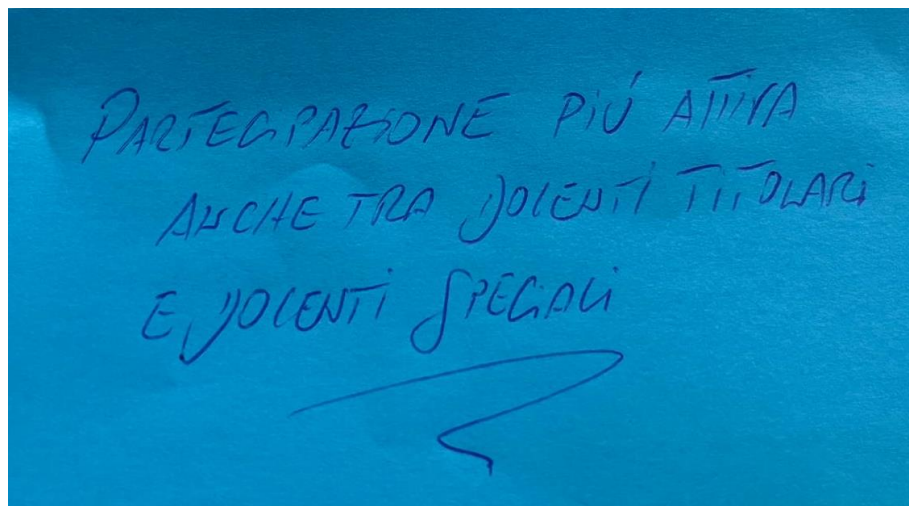 PARTECIPAZIONE PIÚ ATTIVA
ANCHE TRA DOCENTI TITOLARI
E DOCENTI SPECIALI